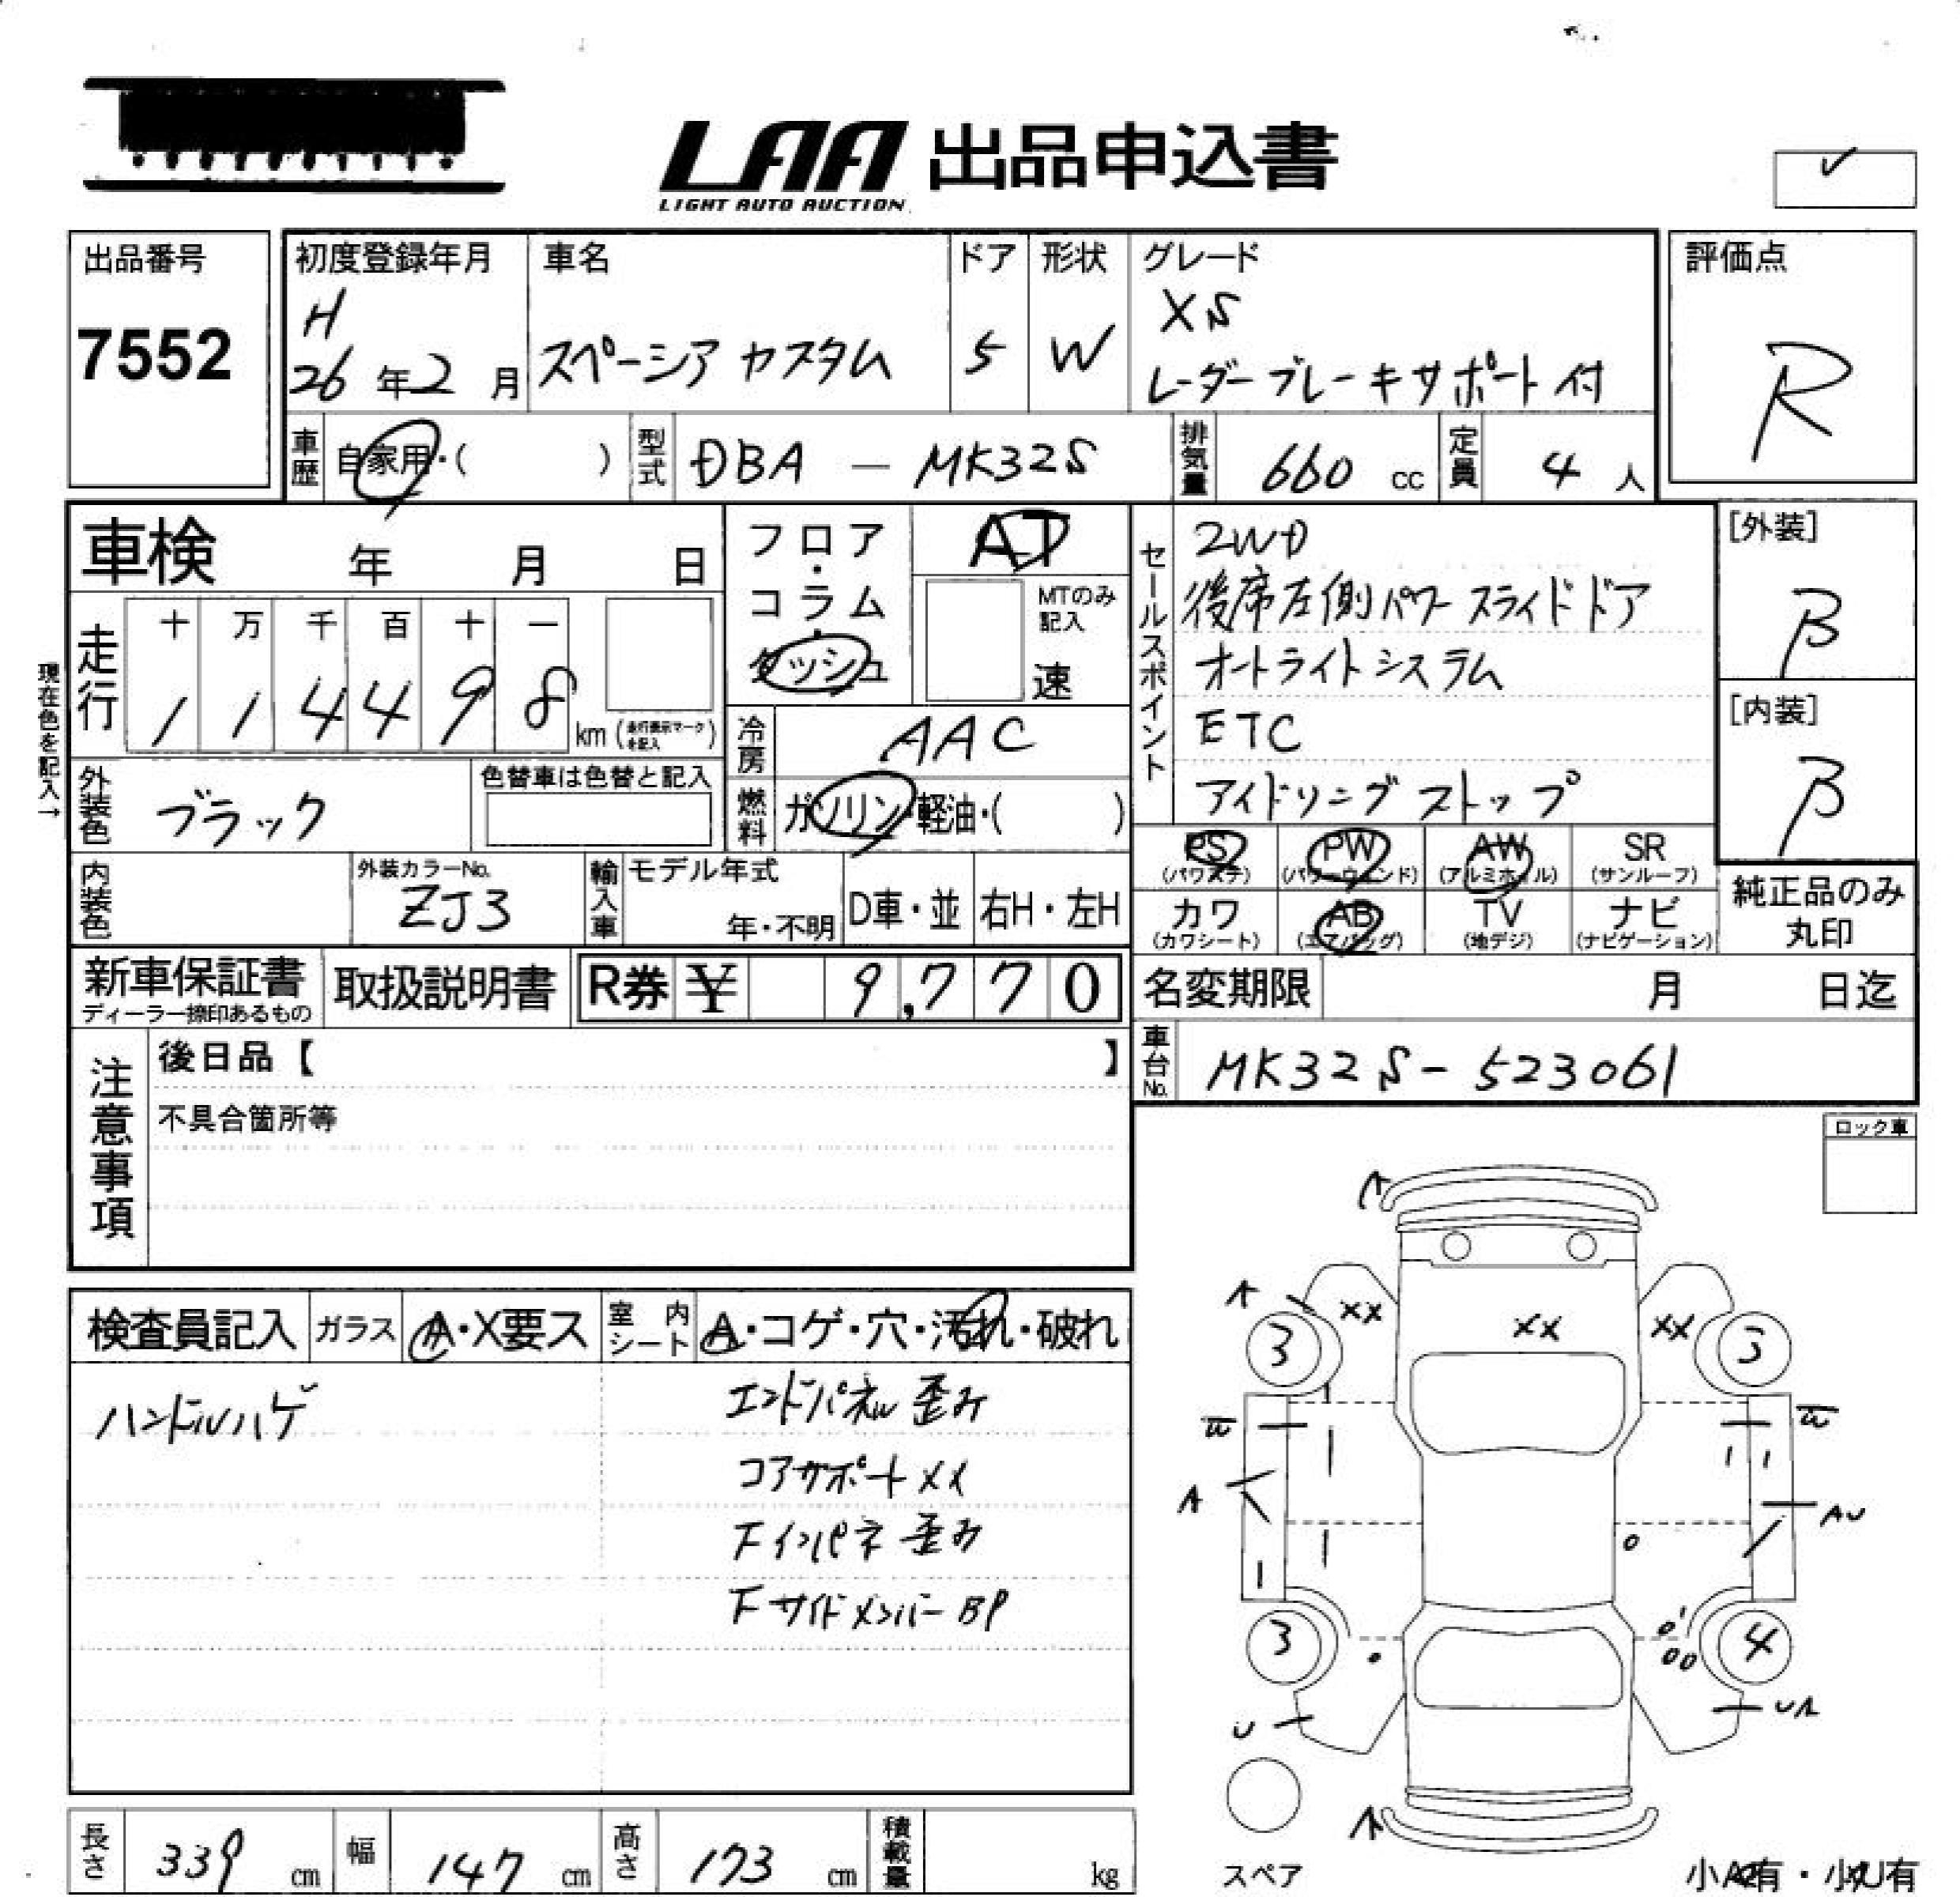 LAA 出品申込書
LIGHT AUTO AUCTION
出品番号
7552
初度登録年月
H
26年2月
車名
スペーシア カスタム
ドア
5
形状
W
グレード
XS
レーダーブレーキサポート付
評価点
R
車歴
自家用・( )
型式
DBA - MK32S
排気量
660 cc
定員
4 人
車検 年 月 日
フロア・コラム・ダッシュ
AT
MTのみ記入
速
セールスポイント
2WD
後席左側パワースライドドア
オートライトシステム
ETC
アイドリングストップ
[外装]
B
[内装]
B
現在色を記入→
走行
十 万 千 百 十 一
1 1 4 4 9 8
km (走行表示マークを記入)
冷房
AAC
外装色
ブラック
色替車は色替と記入
燃料
ガソリン・軽油・( )
内装色
外装カラーNo.
ZJ3
輸入車
モデル年式
年・不明
D車・並
右H・左H
PS
(パワステ)
PW
(パワーウィンド)
AW
(アルミホイル)
SR
(サンルーフ)
カワ
(カワシート)
AB
(エアバッグ)
TV
(地デジ)
ナビ
(ナビゲーション)
純正品のみ
丸印
新車保証書
ディーラー捺印あるもの
取扱説明書
R券 ¥ 9,770
名変期限 月 日迄
車台No.
MK32S-523061
注意事項
後日品【 】
不具合箇所等
ロック車
検査員記入
ガラス
A・X要ス
室内シート
A・コゲ・穴・汚れ・破れ
ハンドルハゲ
エンドパネル歪み
コアサポートXX
Fインパネ歪み
FサイドメンバーBP
A
A
XX
XX
XX
3
3
W
W
A
AU
3
4
U
UA
A
スペア
小A有・小U有
長さ
339 cm
幅
147 cm
高さ
173 cm
積載量
kg